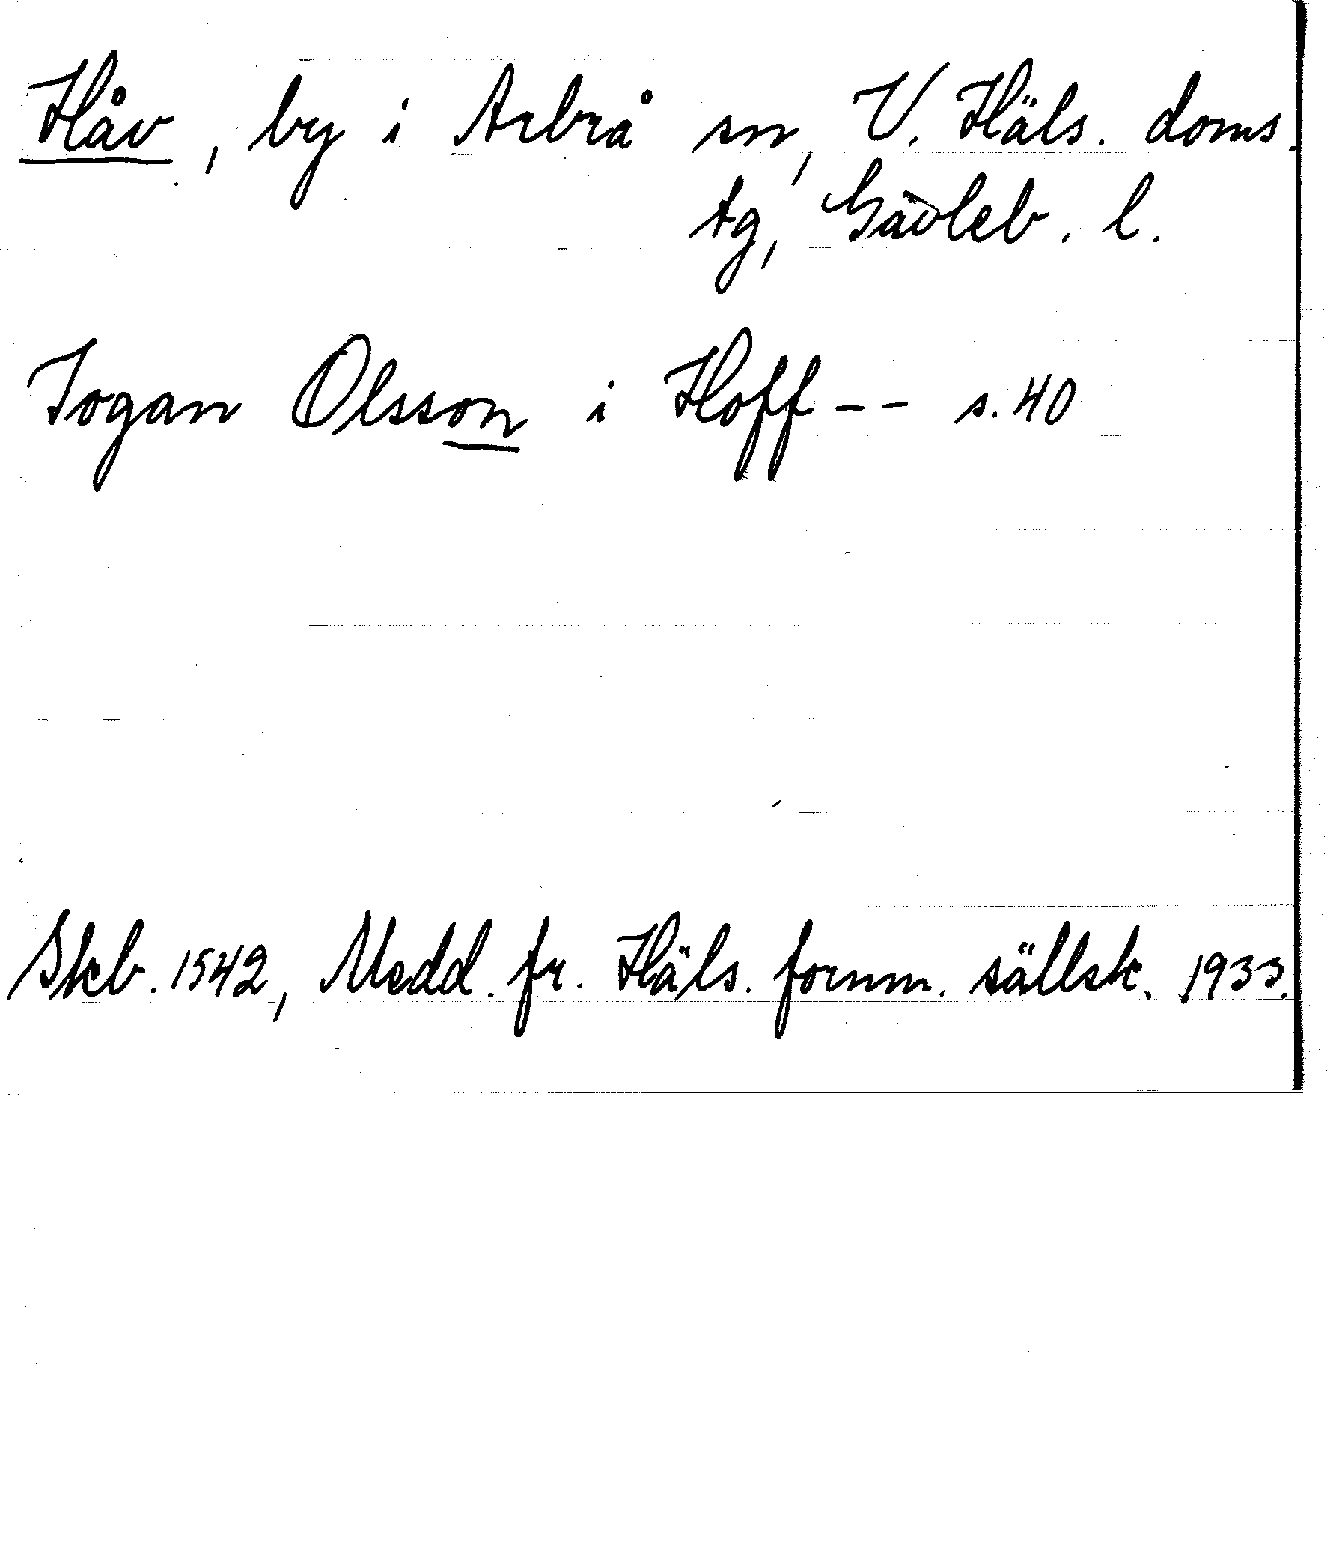 Håv, by i Arbrå sn, V. Häls. doms.
tg, Gävleb. l.
Jogan Olsson i Hoff -- s. 40
Skb. 1542, Medd. fr. Häls. fornm. sällsk. 1933.